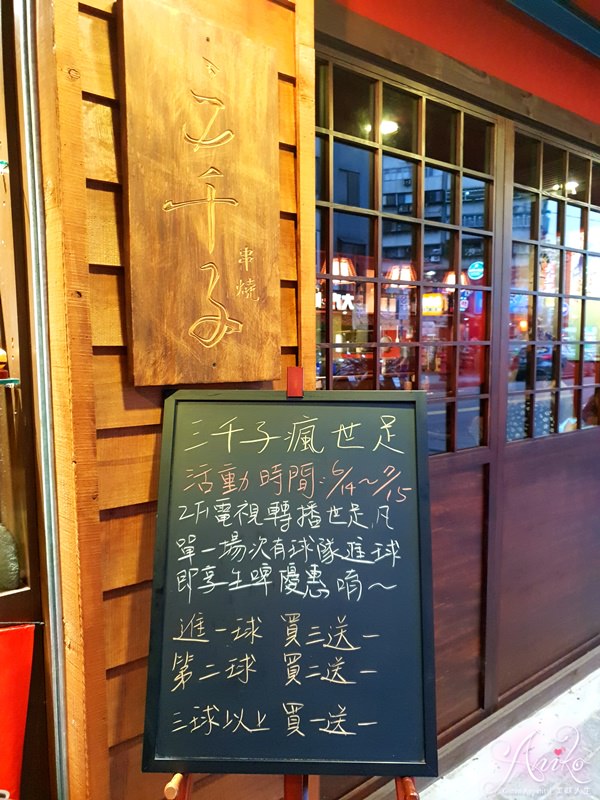 三千子
串燒
三千子瘋世足
活動時間:6/14～7/15
2F電視轉播世足,凡
單一場次有球隊進球
即享生啤優惠唷～
進一球 買三送一
第二球 買二送一
三球以上 買一送一
Aniko